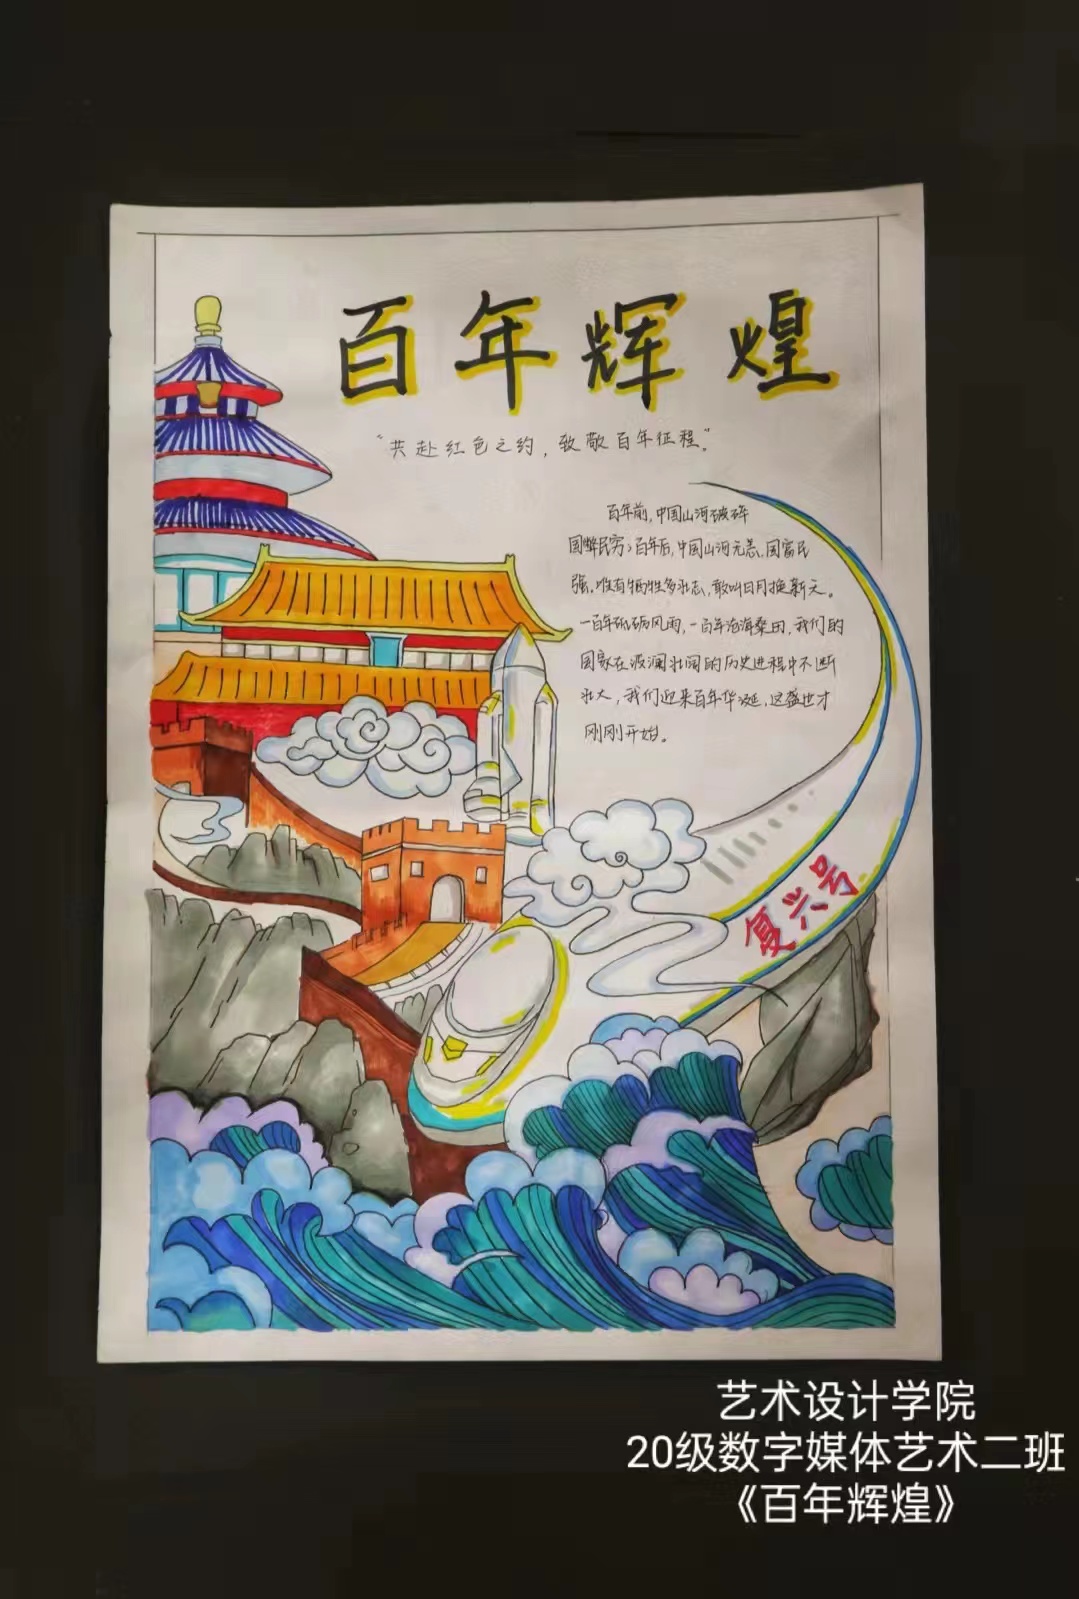 百年辉煌
“共赴红色之约，致敬百年征程。”
百年前，中国山河破碎
国弊民穷；百年后，中国山河无恙，国富民
强。唯有牺牲多壮志，敢叫日月换新天。
一百年砥砺风雨，一百年沧海桑田，我们的
国家在波澜壮阔的历史进程中不断
壮大，我们迎来百年华诞，这盛世才
刚刚开始。
复兴号
艺术设计学院
20级数字媒体艺术二班
《百年辉煌》